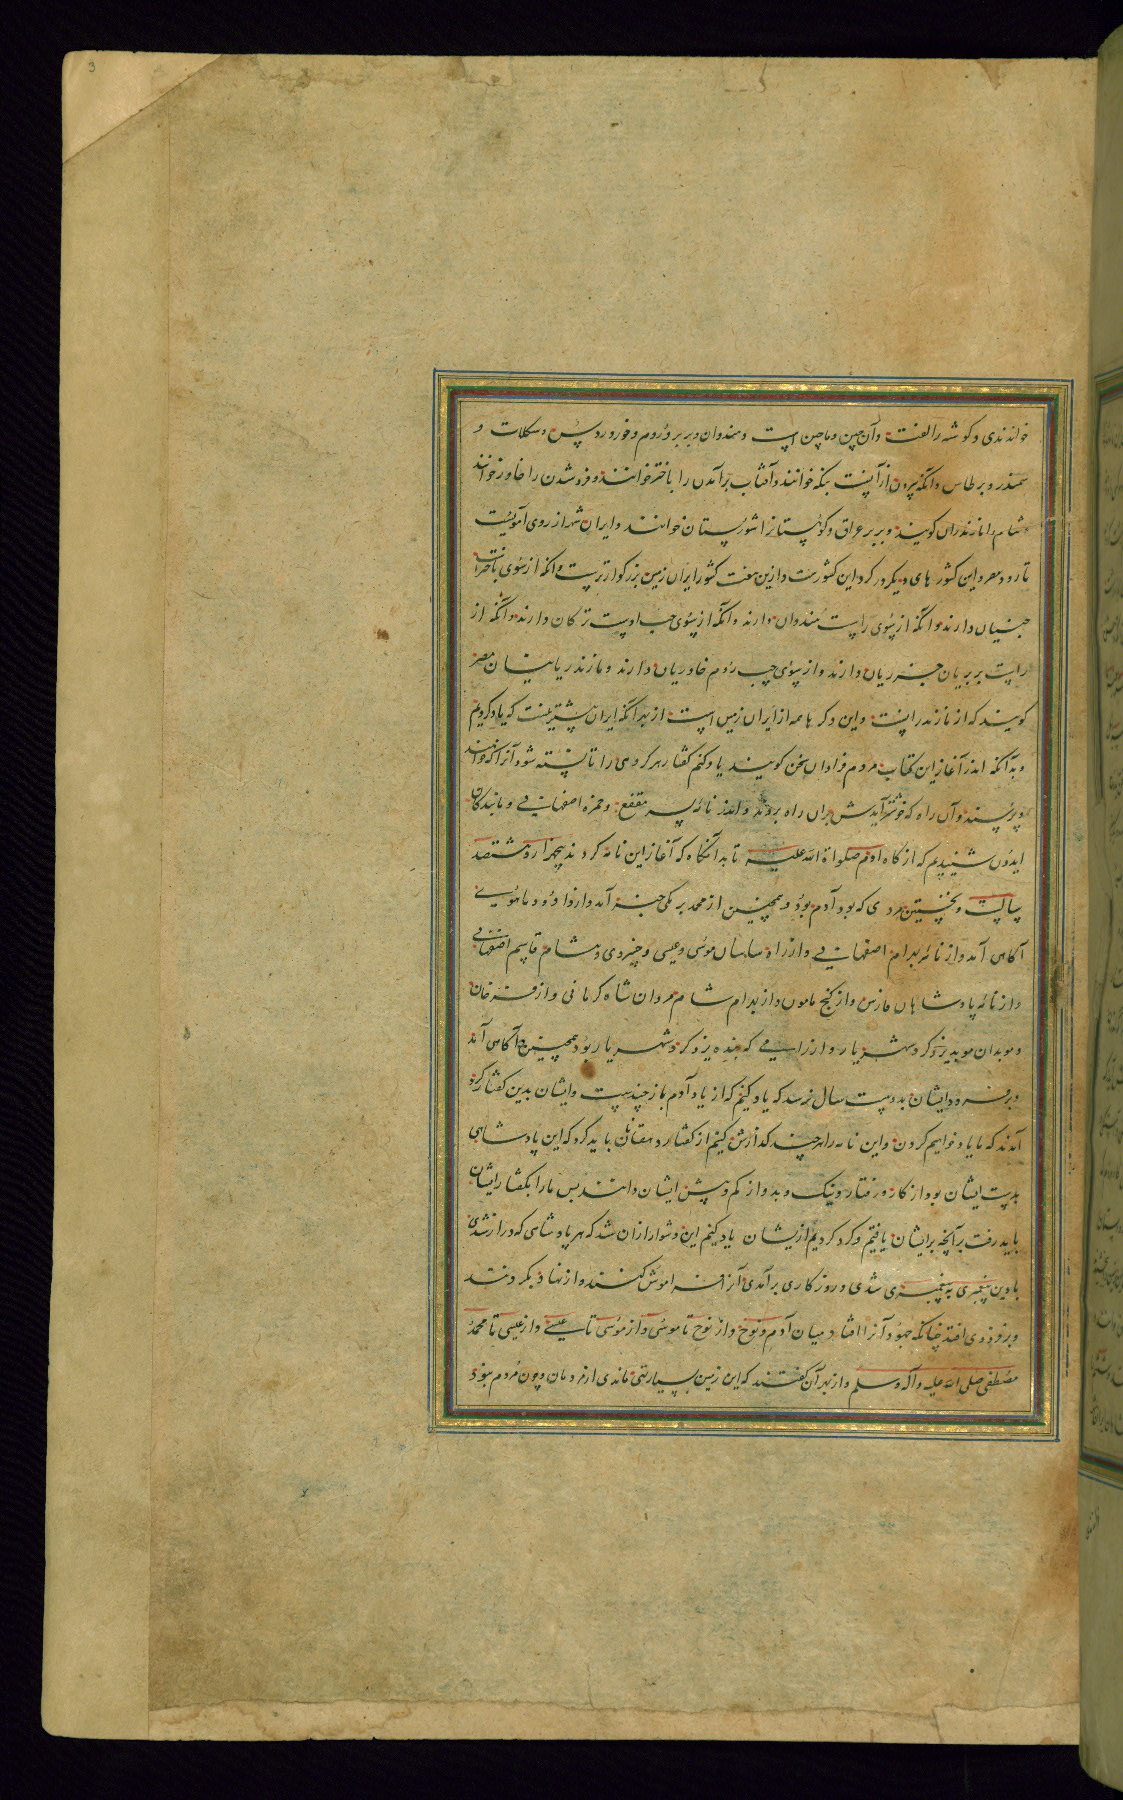 3
خواندندی و کوشه را لفت و آن چین و ماچین است و هندوان و بربر و روم و خزر و روس و سکلاب و
سمندر و برطاس و انکه بیرون از آنست بنکه خوانند و آفتاب برآمدن را باختر خوانند و فروشدن را خاور خوانند
شام را مازندران کویند و بربر عراق و کوهستانرا شورستان خوانند و ایران شهر از روی آمویست
تا رود مصر و این کشور های دیکر در کرد این کشورست و ازین هفت کشور ایران زمین بزرکوارترست و انکه از سوی باخترست
چینیان دارند و انکه از سوی راست هندوان دارند و انکه از سوی چپ اوست ترکان دارند و انکه از
راست بربریان خزریان دارند و از سوی چپ روم خاوریان دارند و مازندریانیشان مصر
کویند که از مازندرانست و این دکر ها همه از ایران زمین است از بدانکه ایران پیشترینست که یاد کردیم
و بدانکه اندر آغاز این کتاب مردم فراوان سخن کویند یاد کنم کفتار هر کروهی را تا دانسته شود آنرا که خواهند
و بپرسند و آن راه که خوشتر آیدش بران راه بروند و اندر نامه پسر مقفع و حمزه اصفهانی و مانندکان
ایدون شنیدیم که از کاه آدم صلواة الله علیه تا بدانکاه که آغاز این نامه کردند پنجهزار و هشتصد
سالست و نخستین مردی که بود آدم بود و همچنین از محمد برمکی خبر آمد و از داود ماموسی
آکاهی آمد و از نامه بهرام اصفهانی و از راه ساسان موسی و عیسی و خسروی و هشام قاسم اصفهانی
و از نامه پادشاهان فارس و از کنج مامون و از بهرام شام مردان شاه کرمانی و از فرخان
و موبدان موبد یزدکرد شهریار و از رامی که بنده یزدکرد شهریار بود همچنین آکاهی آمد
و بر فرود ایشان بدویست سال نرسد که یاد کنیم که از یاد آدم باز چندست و ایشان بدین کفتار کرد
آمدند که ما یاد خواهیم کردن و این نامه را هر چند که ازش کنیم از کفتار دهقانان باید کرد که این پادشاهی
بدست ایشان بود از کار و رفتار و نیک و بد و از کم و بیش ایشان دانند پس ما را بکفتار ایشان
باید رفت بر آنچه برایشان یافتیم و کرد کردیم از یشان یاد کنیم این دشوار از ان شد که هر پادشاهی که دراز شدی
یا دین پیغمبری به پیغمبری شدی و روزکاری برآمدی آنرا فراموش کنند و از نهاد بکردند
و بر فزودی افتد چنانکه جهود آنرا افتاد میان آدم و نوح و از نوح تا موسی و از موسی تا عیسی و از عیسی تا محمد
مصطفی صلی الله علیه و آله وسلم و از بهر آن کفتند که این زمین بسیار تهی ماندی از مردمان و چون مردم نبود